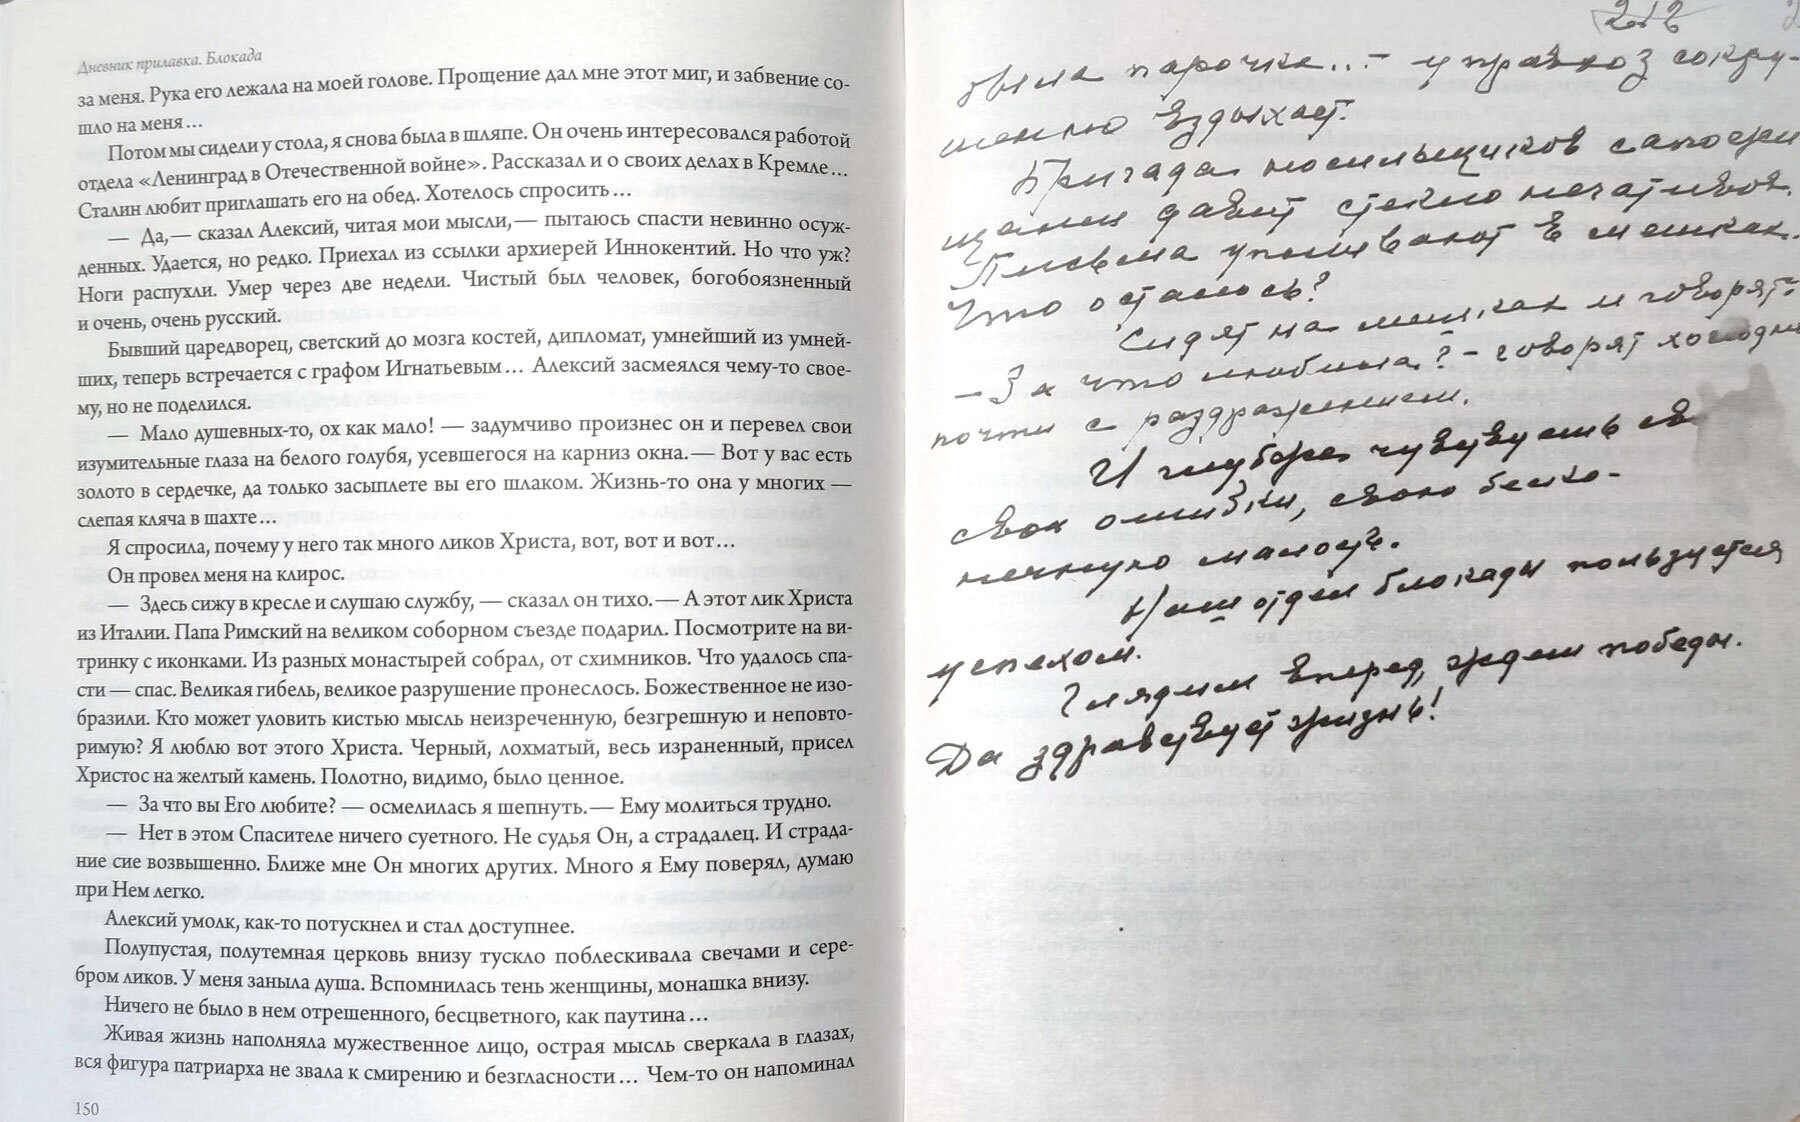 Дневник прилавка. Блокада
за меня. Рука его лежала на моей голове. Прощение дал мне этот миг, и забвение со-
шло на меня…
Потом мы сидели у стола, я снова была в шляпе. Он очень интересовался работой
отдела «Ленинград в Отечественной войне». Рассказал и о своих делах в Кремле…
Сталин любит приглашать его на обед. Хотелось спросить…
— Да,— сказал Алексий, читая мои мысли,— пытаюсь спасти невинно осуж-
денных. Удается, но редко. Приехал из ссылки архиерей Иннокентий. Но что уж?
Ноги распухли. Умер через две недели. Чистый был человек, богобоязненный
и очень, очень русский.
Бывший царедворец, светский до мозга костей, дипломат, умнейший из умней-
ших, теперь встречается с графом Игнатьевым… Алексий засмеялся чему-то свое-
му, но не поделился.
— Мало душевных-то, ох как мало! — задумчиво произнес он и перевел свои
изумительные глаза на белого голубя, усевшегося на карниз окна.— Вот у вас есть
золото в сердечке, да только засыплете вы его шлаком. Жизнь-то она у многих —
слепая кляча в шахте…
Я спросила, почему у него так много ликов Христа, вот, вот и вот…
Он провел меня на клирос.
— Здесь сижу в кресле и слушаю службу, — сказал он тихо.— А этот лик Христа
из Италии. Папа Римский на великом соборном съезде подарил. Посмотрите на ви-
тринку с иконками. Из разных монастырей собрал, от схимников. Что удалось спа-
сти — спас. Великая гибель, великое разрушение пронеслось. Божественное не изо-
бразили. Кто может уловить кистью мысль неизреченную, безгрешную и неповто-
римую? Я люблю вот этого Христа. Черный, лохматый, весь израненный, присел
Христос на желтый камень. Полотно, видимо, было ценное.
— За что вы Его любите? — осмелилась я шепнуть.— Ему молиться трудно.
— Нет в этом Спасителе ничего суетного. Не судья Он, а страдалец. И страда-
ние сие возвышенно. Ближе мне Он многих других. Много я Ему поверял, думаю
при Нем легко.
Алексий умолк, как-то потускнел и стал доступнее.
Полупустая, полутемная церковь внизу тускло поблескивала свечами и сере-
бром ликов. У меня заныла душа. Вспомнилась тень женщины, монашка внизу.
Ничего не было в нем отрешенного, бесцветного, как паутина…
Живая жизнь наполняла мужественное лицо, острая мысль сверкала в глазах,
вся фигура патриарха не звала к смирению и безгласности… Чем-то он напоминал
150
212
была парочка... – управхоз сокру-
шенно вздыхает.
Бригада носильщиков сапожи
щами давит стекло негативов.
Письма упихивают в мешках.
Что осталось?
Сидят на мешках и говорят:
– За что любила? – говорят холодно
почти с раздражением.
И глубоко чувствуешь св
свои ошибки, свою беско-
нечную малость.
Наш отдел блокады пользуется
успехом.
Глядим вперед, ждем победы.
Да здравствует жизнь!